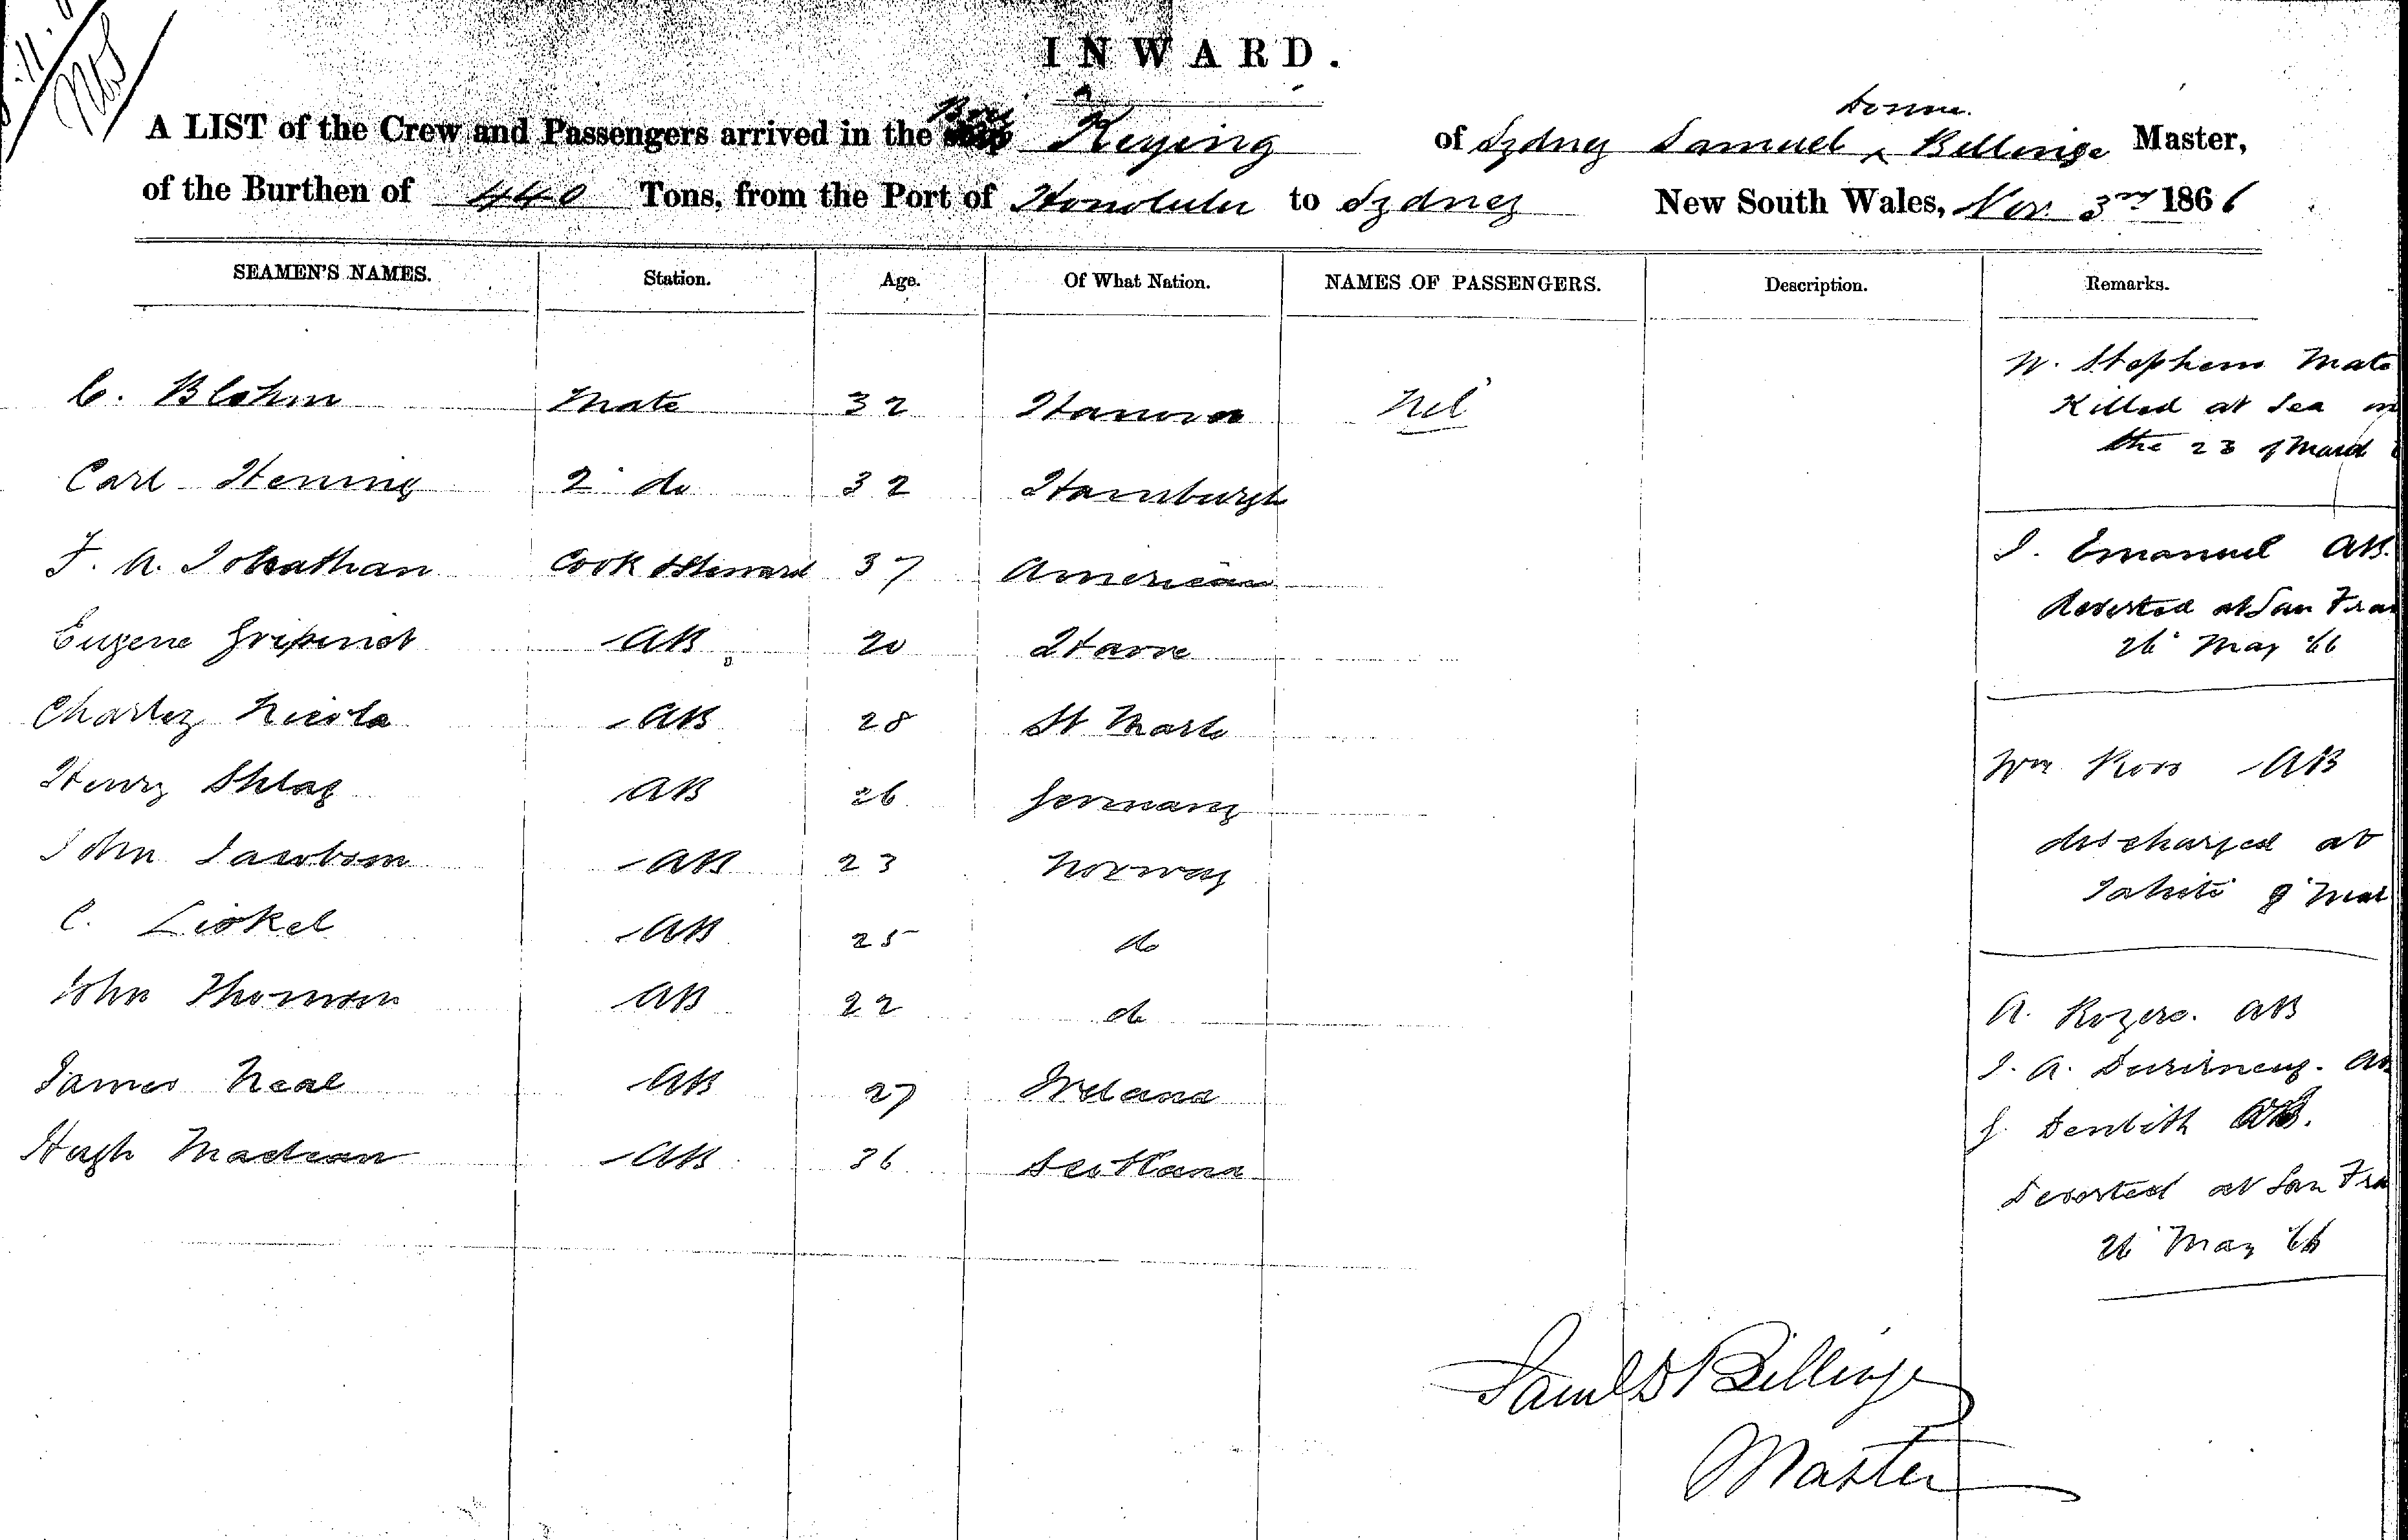 INWARD.
A LIST of the Crew and Passengers arrived in the Keying of Sydney Samuel Donne Billinge Master,
of the Burthen of 440 Tons, from the Port of Honolulu to Sydney New South Wales, Nov. 3rd 1866
SEAMEN'S NAMES. Station. Age. Of What Nation. NAMES OF PASSENGERS. Description. Remarks.
C. Blohm Mate 32 Hanover Nil W. Stephens Mate
Killed at Sea on
the 23 of March
Carl Hening 2 do 32 Hamburgh
F. A. Johnathan Cook & Steward 37 American J. Emanuel AB.
Deserted at San Fran
Eugene AB 20 Havre 26 May 66
Charley Nicola AB 28 St Marlo
Henry Shlag AB 26 Germany Wm Ross AB
John Jacobson AB 23 Norway discharged at
Tahiti 9 Mar
C. Liokel AB 25 do
John Thomson AB 22 do A. Rogers. AB
James Neal AB 27 Ireland J. A. AB
J. Denbith AB.
Hugh Maclean AB 36 Scotland Deserted at San Fra
26 May 66
Saml D Billinge
Master